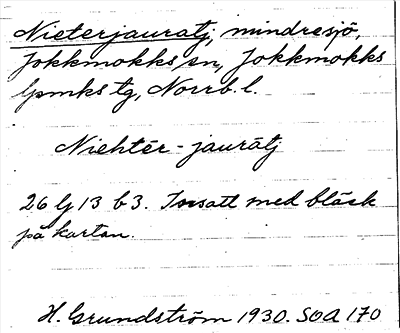 Nieterjauratj, mindre sjö,
Jokkmokks sn, Jokkmokks
lpmks tg, Norrb. l.
Niehtēr-jaurātj
26 G 13 b 3. Insatt med bläck
på kartan.
H. Grundström 1930. SOA 170